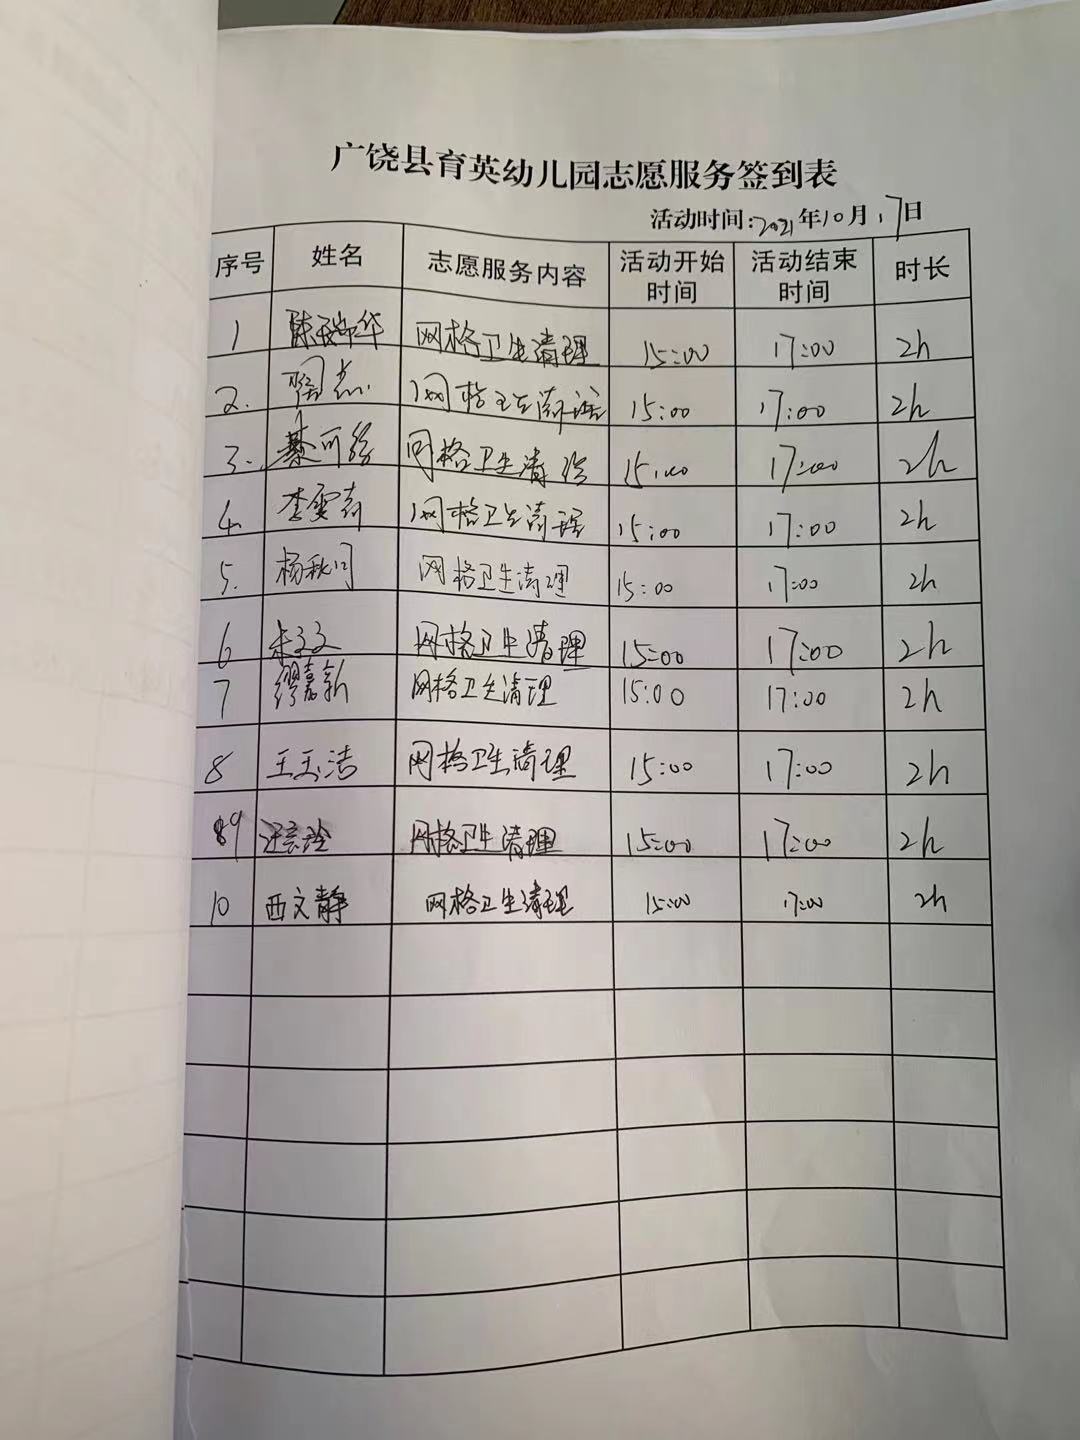 广饶县育英幼儿园志愿服务签到表
活动时间:2021年10月17日
序号 姓名 志愿服务内容 活动开始时间 活动结束时间 时长
1 陈瑞华 网格卫生清理 15:00 17:00 2h
2. 网格卫生清理 15:00 17:00 2h
3. 綦可 网格卫生清 15:00 17:00 2h
4. 李雯 网格卫生清理 15:00 17:00 2h
5. 杨秋 网格卫生清理 15:00 17:00 2h
6 文 网格卫生清理 15:00 17:00 2h
7 缪嘉新 网格卫生清理 15:00 17:00 2h
8 王玉洁 网格卫生清理 15:00 17:00 2h
9 网格卫生清理 15:00 17:00 2h
10 西文静 网格卫生清理 15:00 17:00 2h